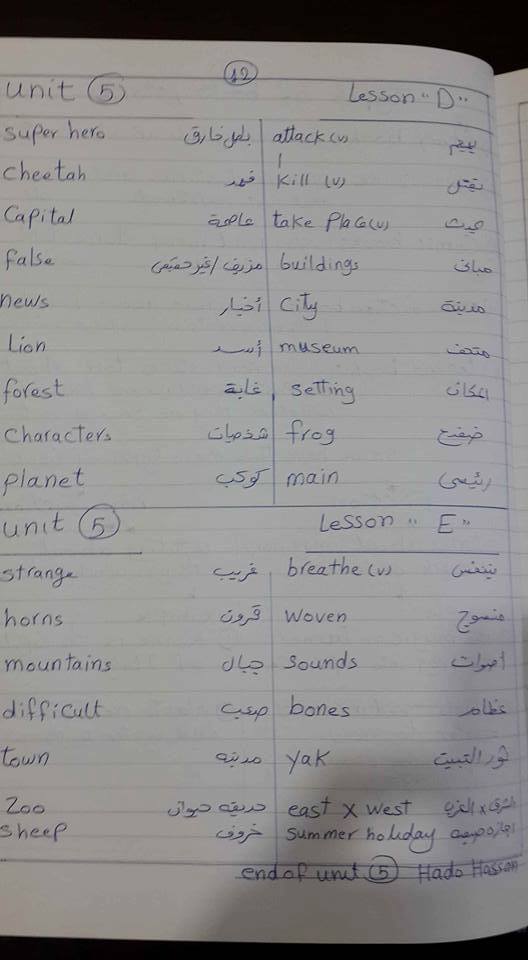 12
unit 5 Lesson "D"
super hero بطل خارق attack (v) يهجم
cheetah فهد kill (v) يقتل
Capital عاصمة take place (v) يحدث
false مزيف / غير حقيقى buildings مبانى
news أخبار City مدينة
Lion أسد museum متحف
forest غابة setting المكان
Characters شخصيات frog ضفدع
planet كوكب main رئيسى
unit 5 Lesson "E"
strange غريب breathe (v) يتنفس
horns قرون woven منسوج
mountains جبال sounds اصوات
difficult صعب bones عظام
town مدينه yak ثور التبت
Zoo حديقه حيوان east X west الشرق x الغرب
sheep خروف summer holiday اجازه صيفيه
end of unit 5 Hado Hassan